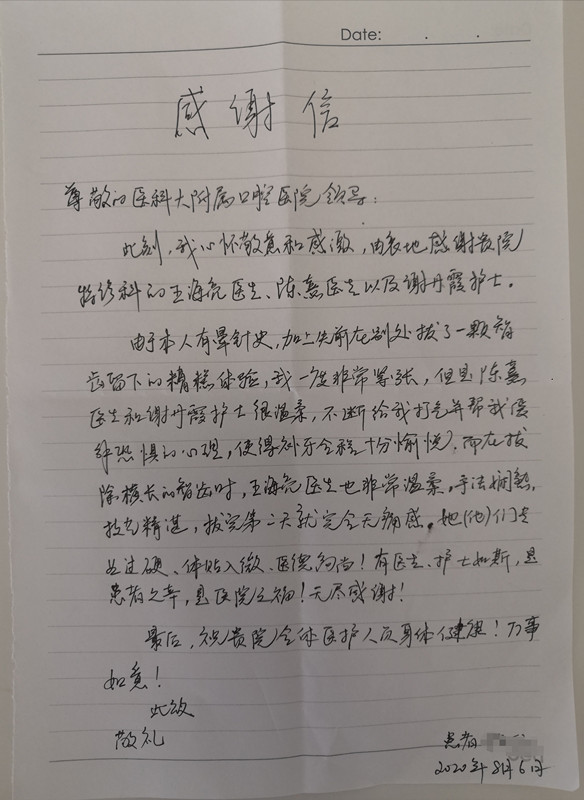 Date: . .
感谢信
尊敬的医科大附属口腔医院领导：
此刻，我心怀敬意和感激，由衷地感谢贵院
特修科的王海亮医生、陈熹医生以及谢丹霞护士。
由于本人有晕针史，加上先前在别处拔了一颗智
齿留下的糟糕体验，我一度非常紧张，但是陈熹
医生和谢丹霞护士很温柔，不断给我打气并帮我缓
解恐惧的心理，使得补牙全程十分愉悦，而在拔
除横长的智齿时，王海亮医生也非常温柔，手法娴熟，
技艺精湛，拔完第二天就完全无痛感。她(他)们专
业过硬、体贴入微、医德高尚！有医生、护士如斯，是
患者之幸，是医院之福！无尽感谢！
最后，祝贵院全体医护人员身体健康！万事
如意！
此致
敬礼
患者
2020年8月6日